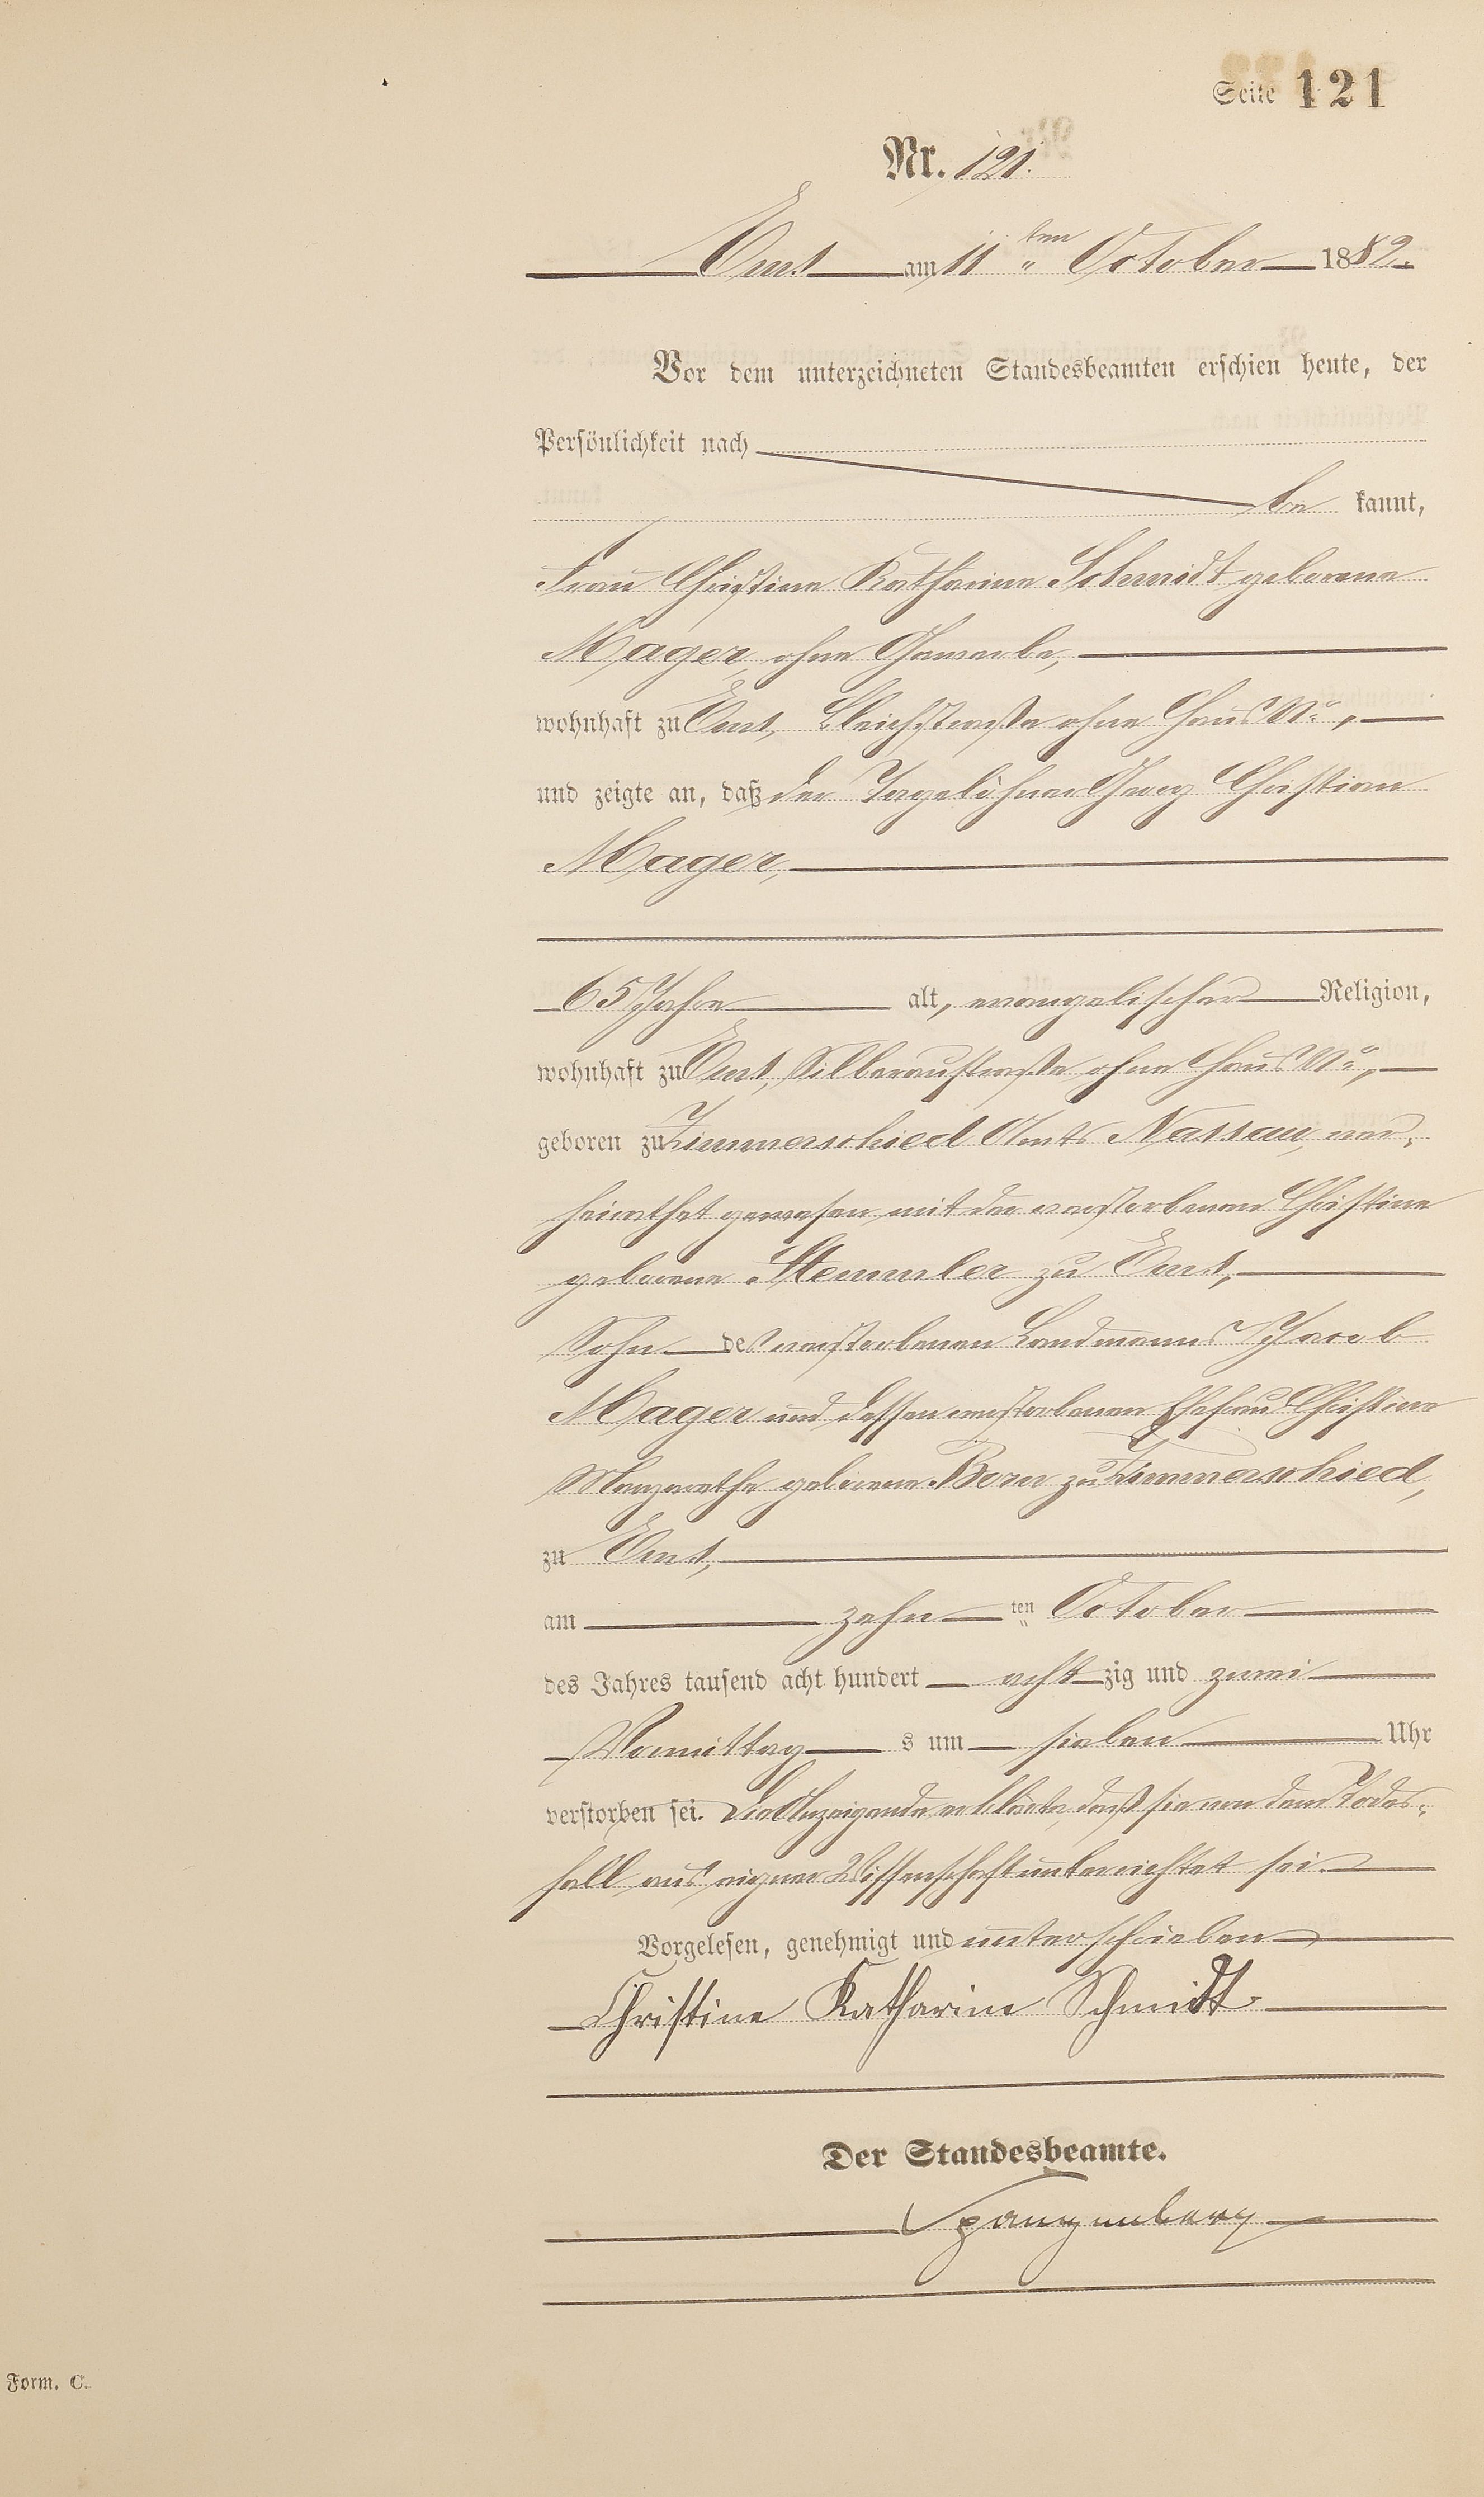 Seite 121
Nr. 121.
Ems am 11 ten October 1882.
Vor dem unterzeichneten Standesbeamten erschien heute, der
Persönlichkeit nach
be kannt,
Frau Christine Katharine Schmidt geborene
Mager, ohne Gewerbe,
wohnhaft zu Ems, Bleichstraße ohne Haus No.,
und zeigte an, daß der Tagelöhner Georg Christian
Mager,
65 Jahre alt, evangelischer Religion,
wohnhaft zu Ems, Silberaustraße ohne Haus No.,
geboren zu Zimmerschied Amts Nassau, ver-
heirathet gewesen mit der verstorbenen Christine
geborene Stemmler zu Ems,
Sohn des verstorbenen Landmanns Jacob
Mager und dessen verstorbenen Ehefrau Christine
Margarethe geborene Born zu Zimmerschied,
zu Ems,
am zehn ten October
des Jahres tausend acht hundert acht zig und zwei
Vormittag s um sieben Uhr
verstorben sei. Die Anzeigende erklärte, daß sie von dem Todes-
fall aus eigner Wissenschaft unterrichtet sei.
Vorgelesen, genehmigt und unterschrieben
Christine Katharine Schmidt
Der Standesbeamte.
Spangenberg
Form. C.